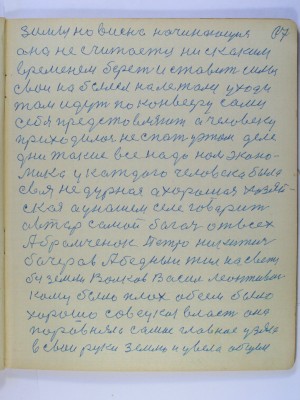 87
зиму но висно начинающия
она не считается ни скаким
временем берет и ставит силы
свои на были налетом уходи
там идут по конвееру сами
себя предстовляит а человеку
приходилось не спат у том деле
дни такие все надо ном эконо-
мика у каждого человека была
своя не дурная а хорошая хозяй-
ская а у нашем селе говорит
автар самой багат от всех
Абрамченок Петро никитич
бачеров А бедный жил на свету
без земли Волков Васил леонтивич
кому было плох а всем было
хорошо советская власт она
поровняла самые главное узяла
в свои руки землю и увела общем